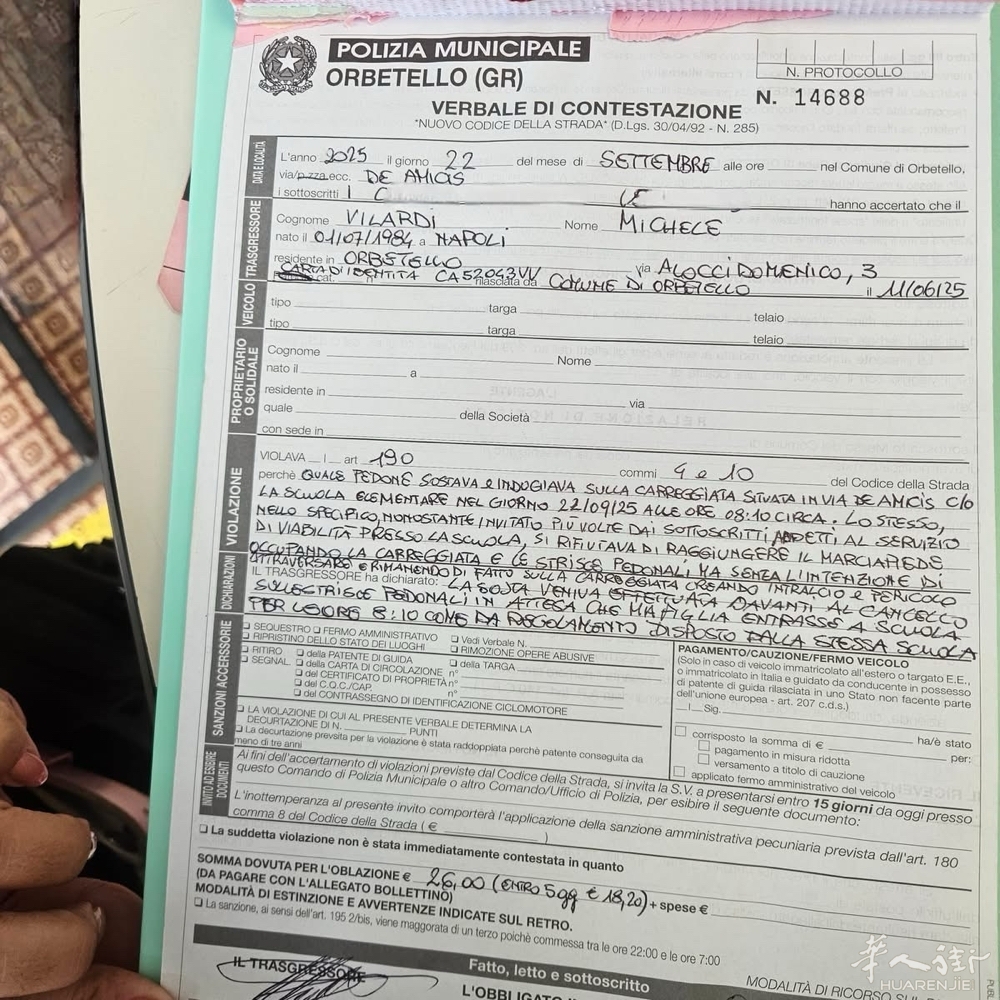 POLIZIA MUNICIPALE
ORBETELLO (GR)
N. PROTOCOLLO
VERBALE DI CONTESTAZIONE
N. 14688
"NUOVO CODICE DELLA STRADA" (D.Lgs. 30/04/92 - N. 285)
DATA E LOCALITÀ
L'anno 2025 il giorno 22 del mese di SETTEMBRE alle ore nel Comune di Orbetello,
via/p.zza ecc. DE AMICIS
i sottoscritti hanno accertato che il
TRASGRESSORE
Cognome VILARDI Nome MICHELE
nato il 01/07/1984 a NAPOLI
residente in ORBETELLO via ALOCCI DOMENICO, 3
CARTA DI IDENTITA CA52043VV rilasciata da COMUNE DI ORBETELLO il 11/06/25
VEICOLO
tipo targa telaio
tipo targa telaio
PROPRIETARIO O SOLIDALE
Cognome Nome
nato il a
residente in via
quale della Società
con sede in
VIOLAZIONE
VIOLAVA art 190 commi 4 e 10 del Codice della Strada
perchè QUALE PEDONE SOSTAVA E INDUGIAVA SULLA CARREGGIATA SITUATA IN VIA DE AMICIS C/O
LA SCUOLA ELEMENTARE NEL GIORNO 22/09/25 ALLE ORE 08:10 CIRCA. LO STESSO,
NELLO SPECIFICO, NONOSTANTE INVITATO PIÙ VOLTE DAI SOTTOSCRITTI ADDETTI AL SERVIZIO
DI VIABILITÀ PRESSO LA SCUOLA, SI RIFIUTAVA DI RAGGIUNGERE IL MARCIAPIEDE
OCCUPANDO LA CARREGGIATA E LE STRISCE PEDONALI, MA SENZA L'INTENZIONE DI
ATTRAVERSARE E RIMANENDO DI FATTO SULLA CARREGGIATA CREANDO INTRALCIO E PERICOLO
DICHIARAZIONI
IL TRASGRESSORE ha dichiarato: LA SOSTA VENIVA EFFETTUATA DAVANTI AL CANCELLO
SULLE STRISCE PEDONALI IN ATTESA CHE MIA FIGLIA ENTRASSE A SCUOLA
PER LE ORE 8:10 COME DA REGOLAMENTO DISPOSTO DALLA STESSA SCUOLA
SANZIONI ACCERSSORIE
SEQUESTRO FERMO AMMINISTRATIVO Vedi Verbale N.
RIPRISTINO DELLO STATO DEI LUOGHI RIMOZIONE OPERE ABUSIVE
RITIRO della PATENTE DI GUIDA della TARGA
SEGNAL. della CARTA DI CIRCOLAZIONE n°
del CERTIFICATO DI PROPRIETÀ n°
del C.Q.C./CAP. n°
del CONTRASSEGNO DI IDENTIFICAZIONE CICLOMOTORE
LA VIOLAZIONE DI CUI AL PRESENTE VERBALE DETERMINA LA
DECURTAZIONE DI N. PUNTI
La decurtazione prevista per la violazione è stata raddoppiata perchè patente conseguita da
meno di tre anni
PAGAMENTO/CAUZIONE/FERMO VEICOLO
(Solo in caso di veicolo immatricolato all'estero o targato E.E.,
o immatricolato in Italia e guidato da conducente in possesso
di patente di guida rilasciata in uno Stato non facente parte
dell'unione europea - art. 207 c.d.s.)
Sig.
corrisposto la somma di € ha/è stato
pagamento in misura ridotta per:
versamento a titolo di cauzione
applicato fermo amministrativo del veicolo
INVITO AD ESIBIRE DOCUMENTI
Ai fini dell'accertamento di violazioni previste dal Codice della Strada, si invita la S.V. a presentarsi entro 15 giorni da oggi presso
questo Comando di Polizia Municipale o altro Comando/Ufficio di Polizia, per esibire il seguente documento:
L'inottemperanza al presente invito comporterà l'applicazione della sanzione amministrativa pecuniaria prevista dall'art. 180
comma 8 del Codice della Strada (€ )
La suddetta violazione non è stata immediatamente contestata in quanto
SOMMA DOVUTA PER L'OBLAZIONE € 26,00 (ENTRO 5 gg € 18,20) + spese €
(DA PAGARE CON L'ALLEGATO BOLLETTINO)
MODALITÀ DI ESTINZIONE E AVVERTENZE INDICATE SUL RETRO.
La sanzione, ai sensi dell'art. 195 2/bis, viene maggiorata di un terzo poichè commessa tra le ore 22:00 e le ore 7:00
Fatto, letto e sottoscritto
IL TRASGRESSORE
L'OBBLIGATO
MODALITÀ DI RICORSO
华人街
HUARENJIE